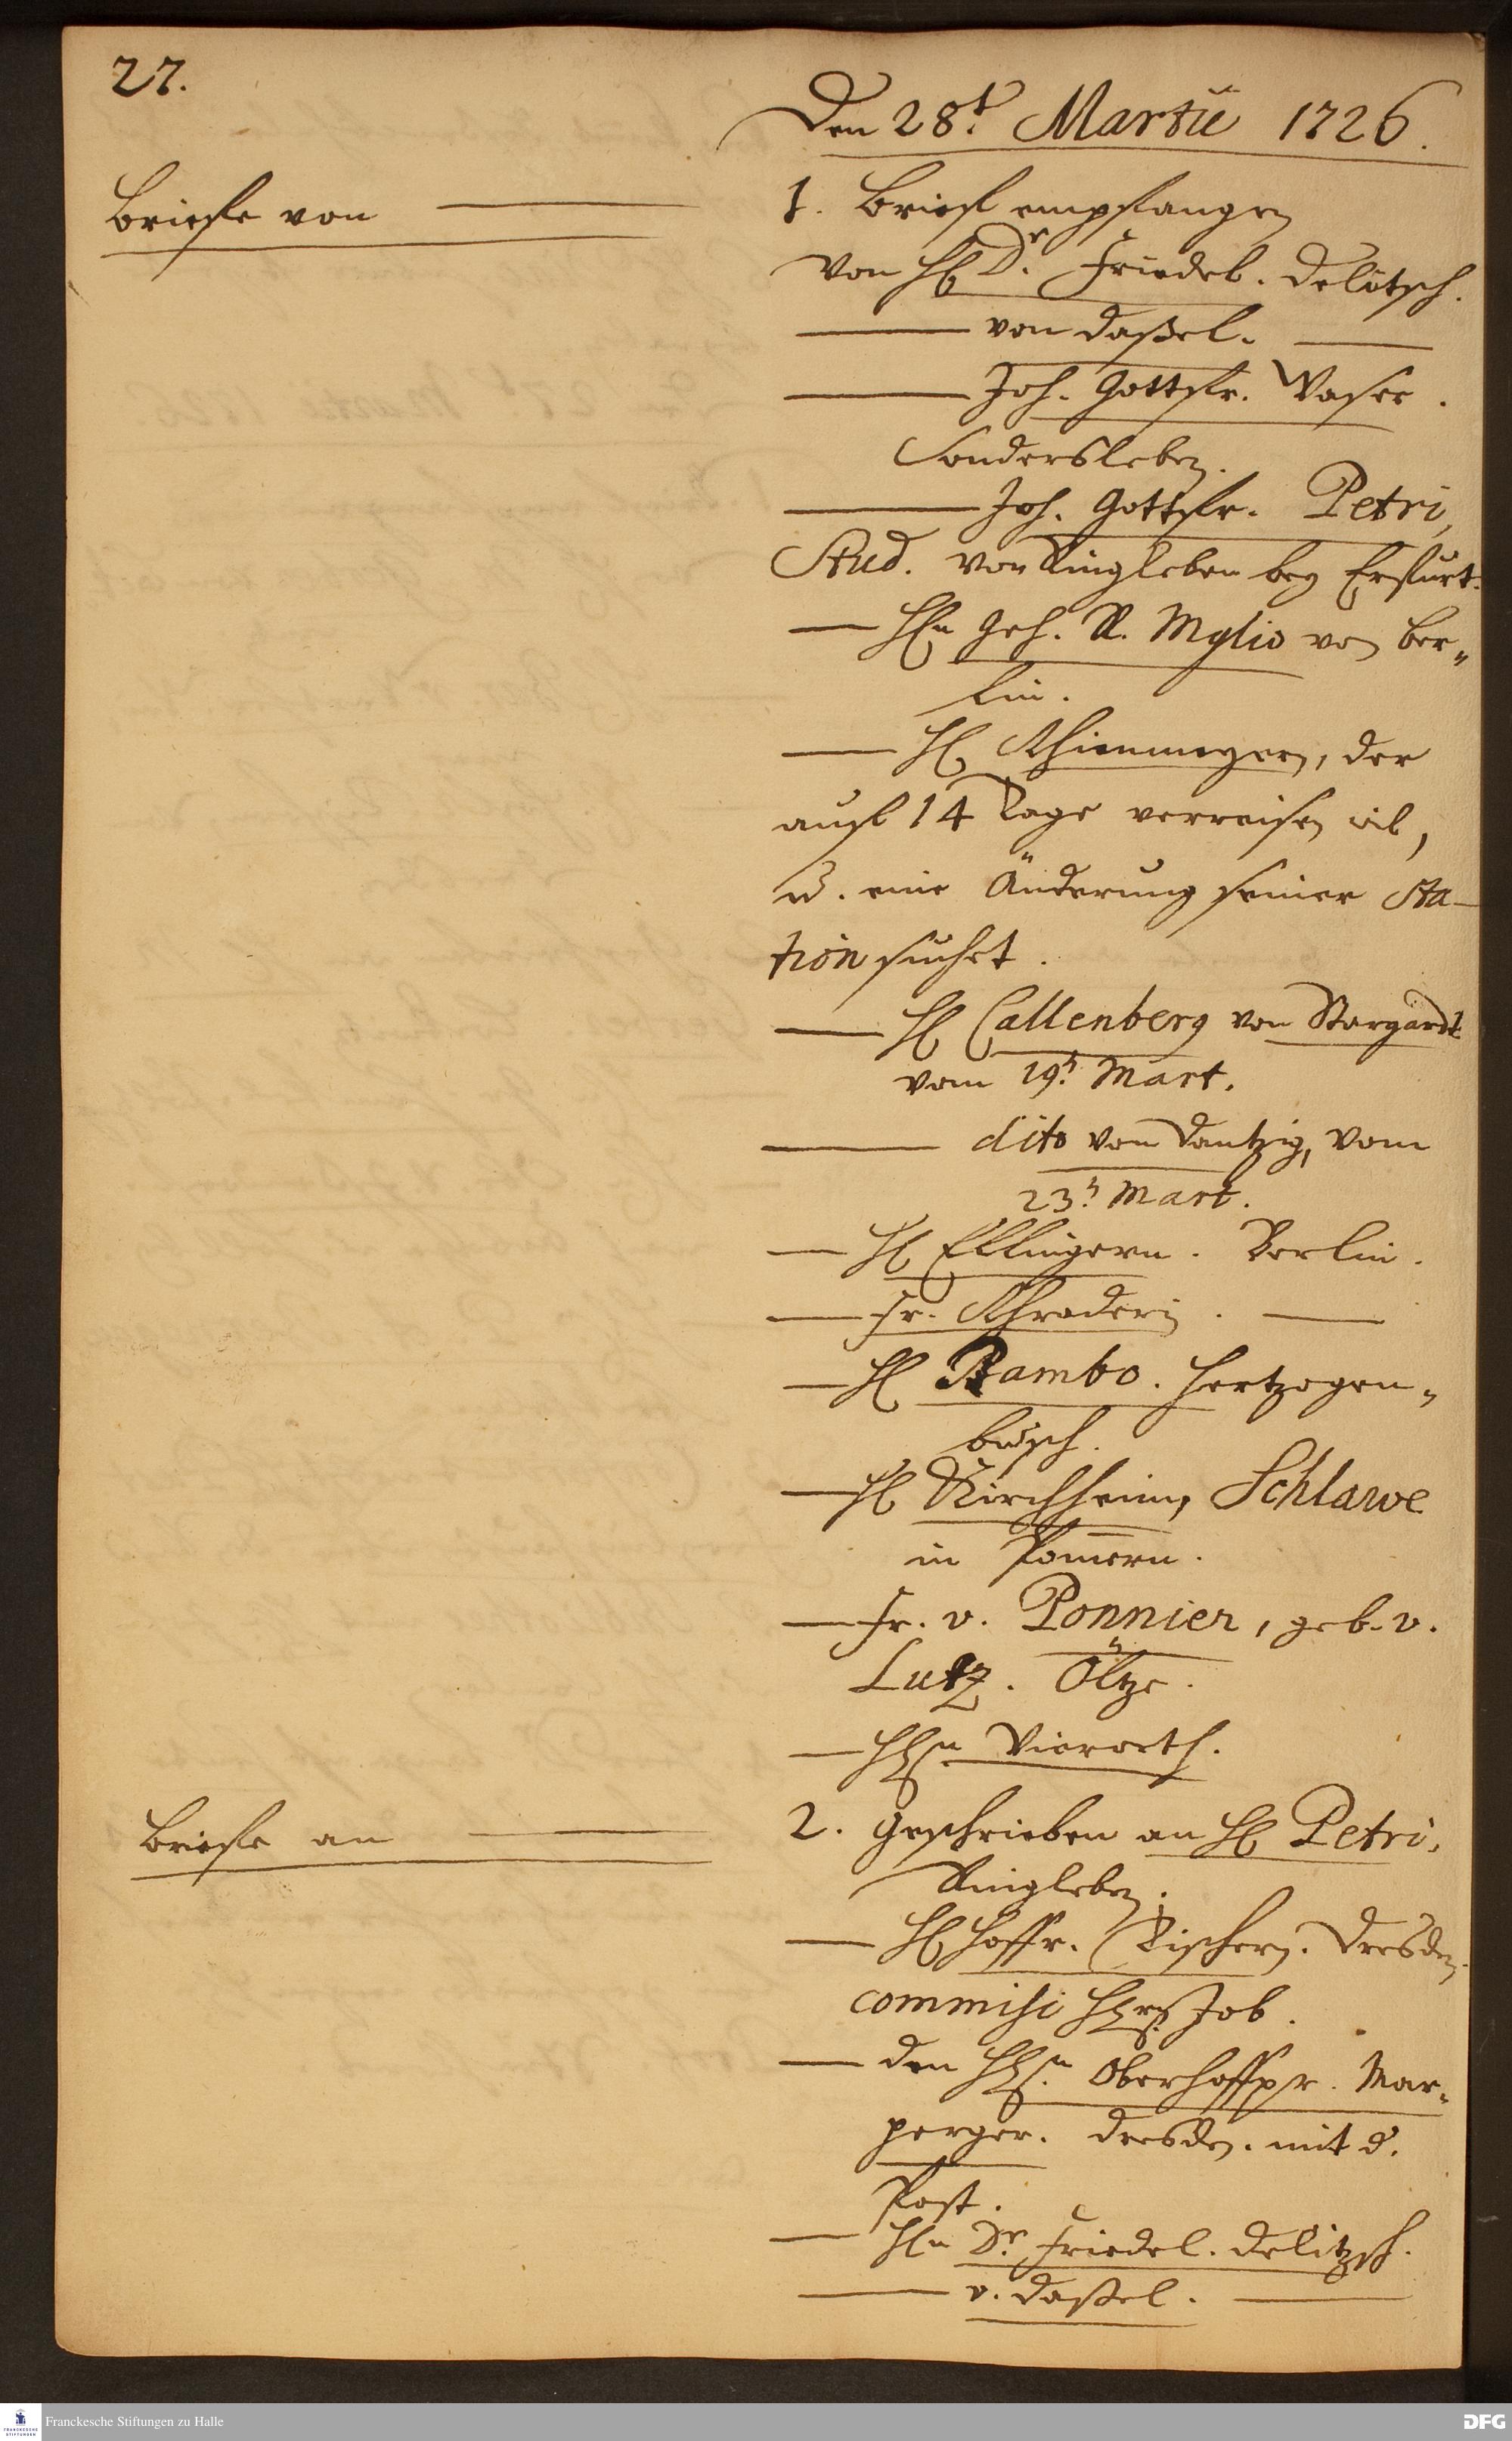 27.
Den 28t Martii 1726.
Briefe von
1. Brief empfangen
Von H Dr. Friedel. Delitsch.
von Daßel.
Joh. Gottfr. Vaser.
Sandersleben.
Joh. Gottfr. Petri,
Stud. von Ringleben bey Erfurt.
HEn Geh. R. Mylio von Ber„
lin.
H Thiemmeyern, der
auf 14 Tage verreisen wil,
u. eine Änderung seiner Sta-
tion suchet.
H Callenberg von Stargardt
vom 19t Mart.
dito von Dantzig, vom
23t Mart.
H Ellingern. Berlin.
Fr. Schraderin.
H Rambo. Hertzogen„
busch.
H Kirchheim, Schlawe
in Pomern.
Fr. v. Ponnier, geb. v.
Lutz. Öltze.
HEn Vierorth.
Briefe an
2. Geschrieben an H Petri,
Ringleben.
H Hoffr. Tischern. Dresden.
commisi Job.
den HEn. Oberhoffpr. Mar„
perger. Dresden. mit d.
Post.
HEn Dr. Friedel. Delitzsch.
v. Daßel.
Franckesche Stiftungen zu Halle
FRANCKESCHE
STIFTUNGEN
DFG